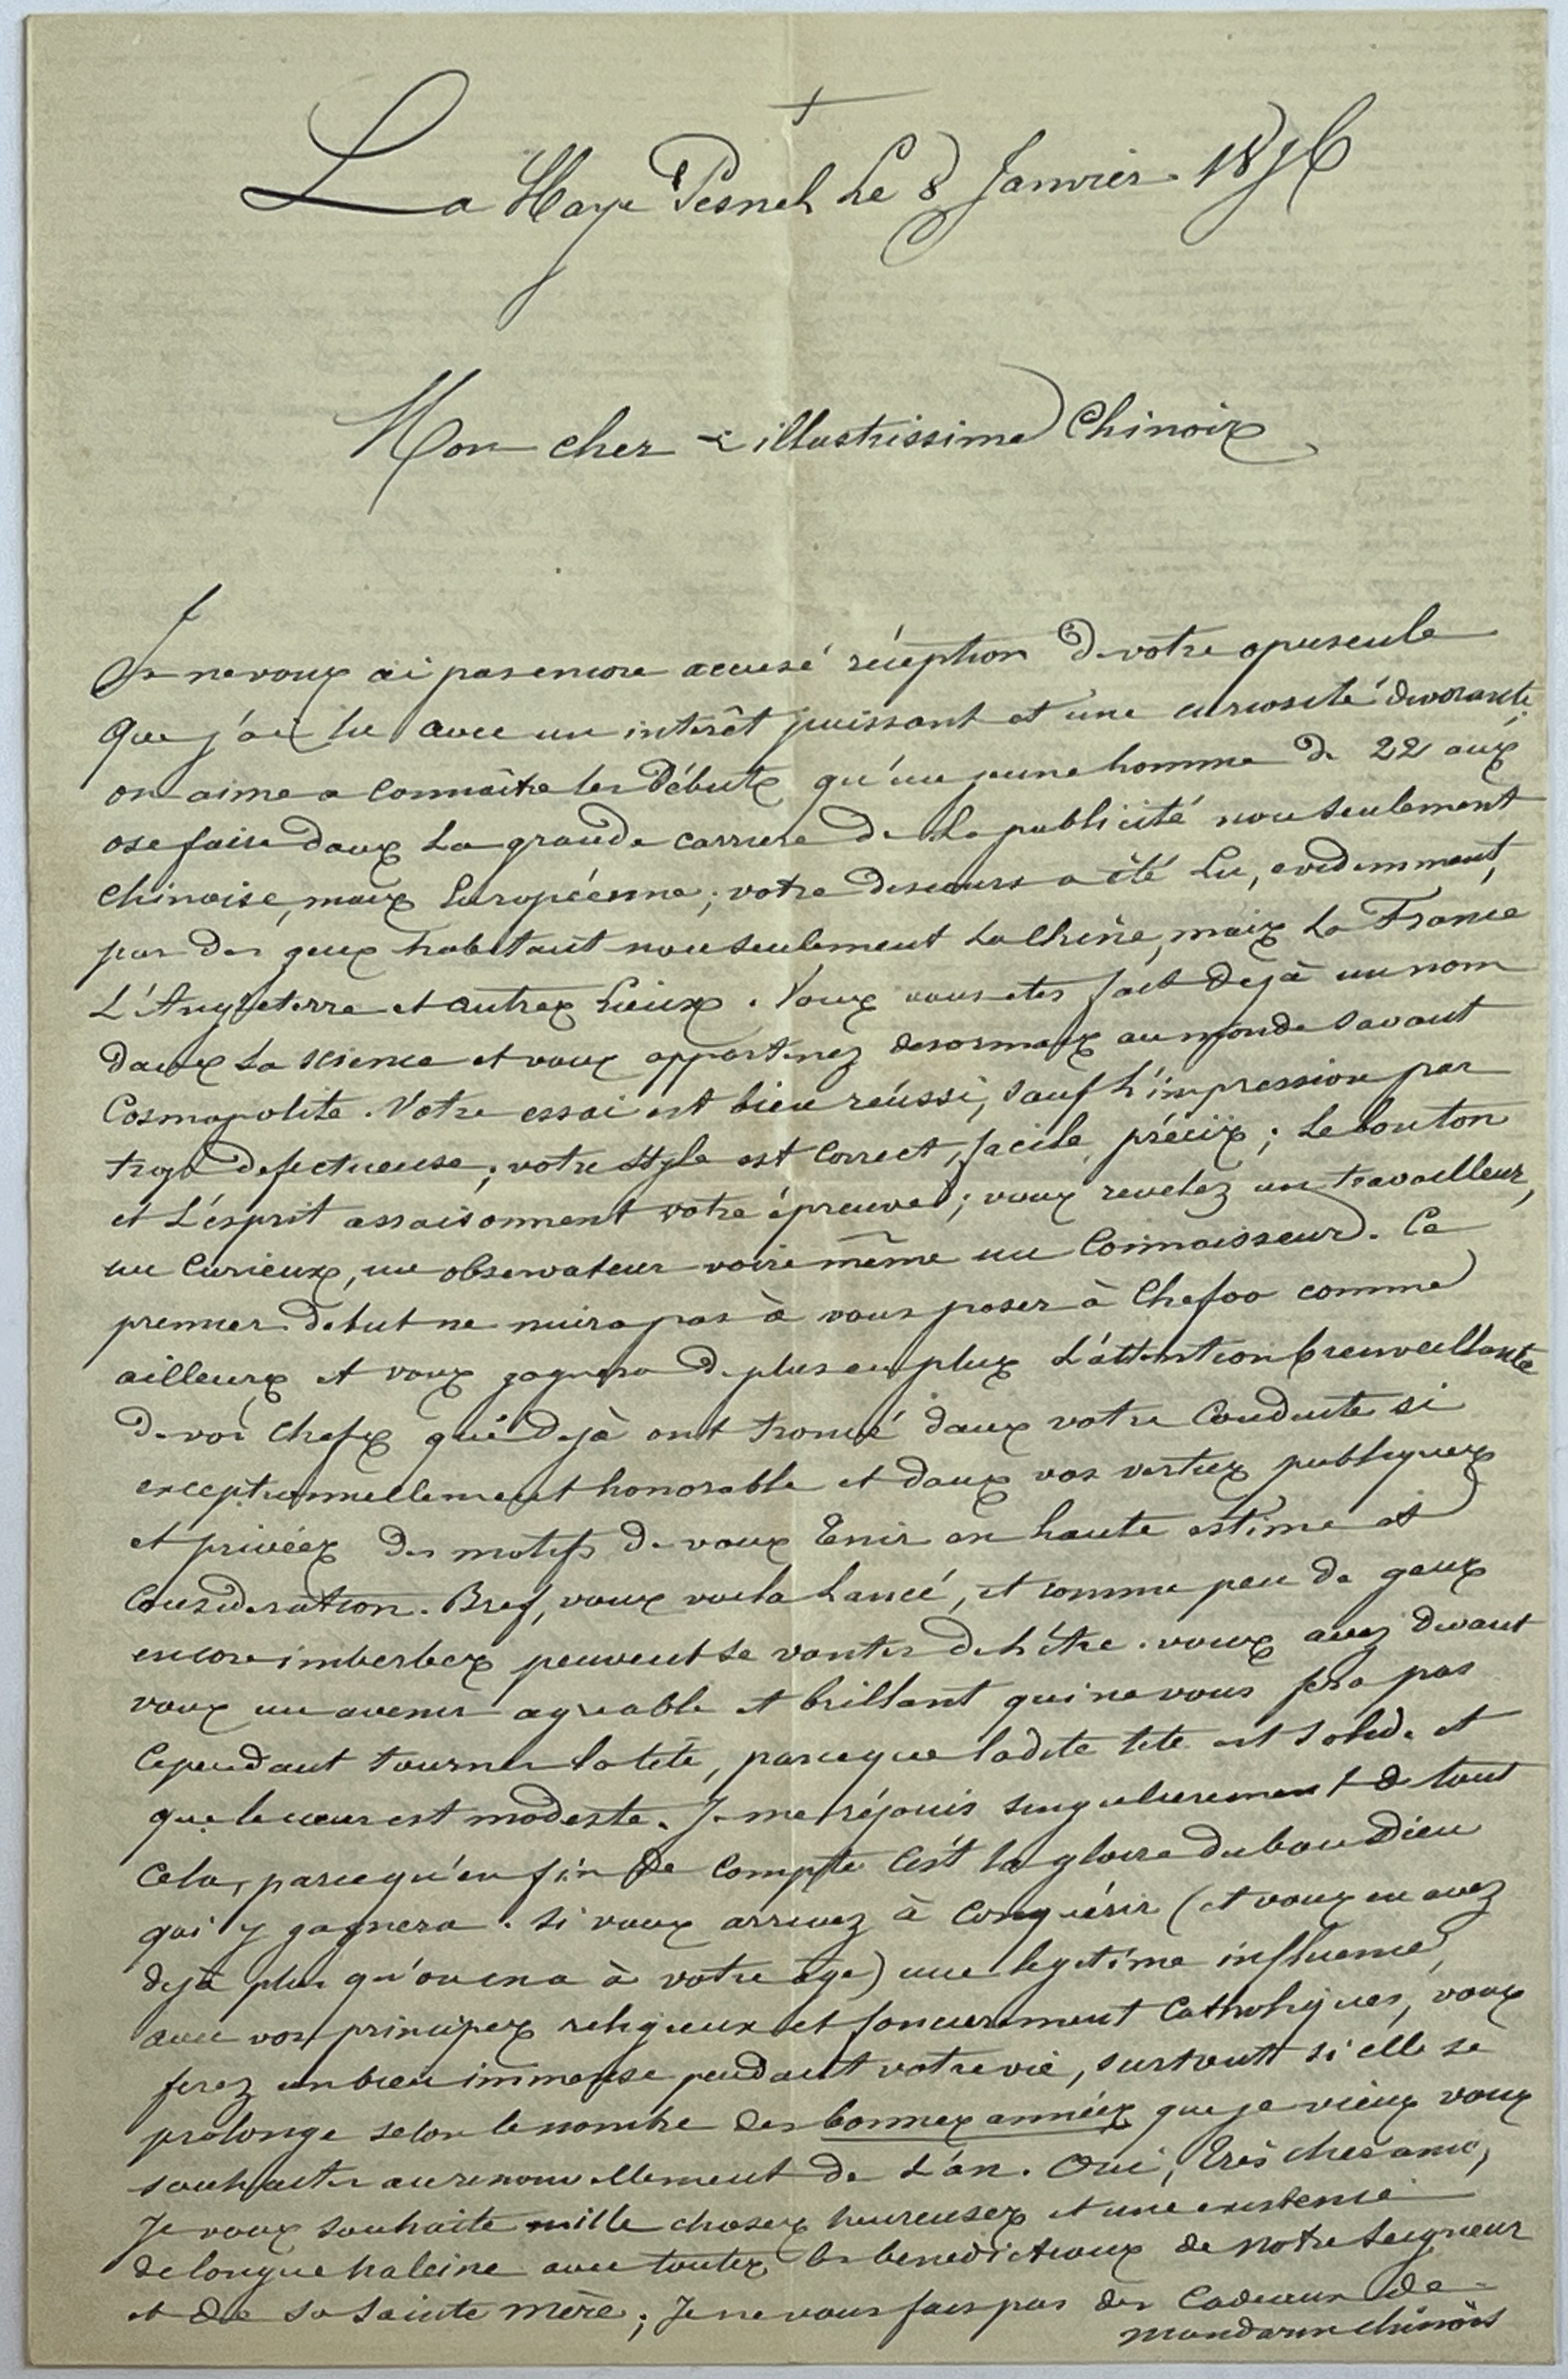 La Haye Pesnel Le 8 Janvier 1876
Mon cher & illustrissime Chinois
Je ne vous ai pas encore accusé réception de votre opuscule
que j'ai lu avec un intérêt puissant et une curiosité devorante;
on aime a connaître les Débuts qu'un jeune homme de 22 ans
ose faire dans La grande carriere de La publicité non seulement
chinoise, mais Européenne; votre discours a été Lu, evidemment,
par des gens habitant non seulement La Chine, mais La France
L'Angleterre et autres Lieux. Vous vous etes fait Dejà un nom
dans La science et vous appartenez desormais au monde savant
Cosmopolite. Votre essai est bien réussi, sauf L'impression par
trop defectueuse; votre style est correct, facile, précis; Le bon ton
et L'esprit assaisonnent votre épreuve; vous revelez un travailleur,
un Curieux, un observateur voire même un Connaisseur. Ce
premier debut ne nuira pas à vous poser à Chefoo comme
ailleurs et vous gagnera de plus en plus L'attention bienveillante
de vos chefs qui Dejà ont trouvé dans votre Conduite si
exceptionnellement honorable et dans vos vertus publiques
et privées des motifs de vous Tenir en haute estime et
Consideration. Bref, vous voila Lancé, et comme peu de gens
encore imberbes peuvent se vanter de L'être. vous avez devant
vous un avenir agréable et brillant qui ne vous fera pas
Cependant tourner la tête, parceque ladite tete est solide et
que le cœur est modeste. Je me réjouis singulierement de tout
Cela, parcequ'en fin de Compte C'est la gloire du bon Dieu
qui y gagnera. Si vous arrivez à Conquérir (et vous en avez
dejà plus qu'on en a à votre âge) une legitime influence,
avec vos principes religieux et foncierement Catholiques, vous
ferez un bien immense pendant votre vie, surtout si elle se
prolonge selon le nombre des bonnes années que je viens vous
souhaiter au renouvellement de L'an. Oui, Très cher ami,
Je vous souhaite mille choses heureuses et une existence
de longue haleine avec toutes les benedictions de Notre Seigneur
et de sa sainte Mère; Je ne vous fais pas des Cadeaux de
mandarin chinois